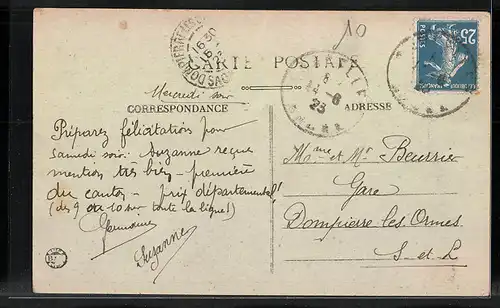 10
CARTE POSTALE
Mercredi soir
CORRESPONDANCE
ADRESSE
Préparez félicitations pour
samedi soir. Suzanne reçue
mention très bien - première
du canton - prix départemental!
(des 9 ou 10 sur toute la ligne!)
Germaine
Suzanne
Mme et Mr Beurrier
Gare
Dompierre les Ormes
S-et-L
25
POSTES